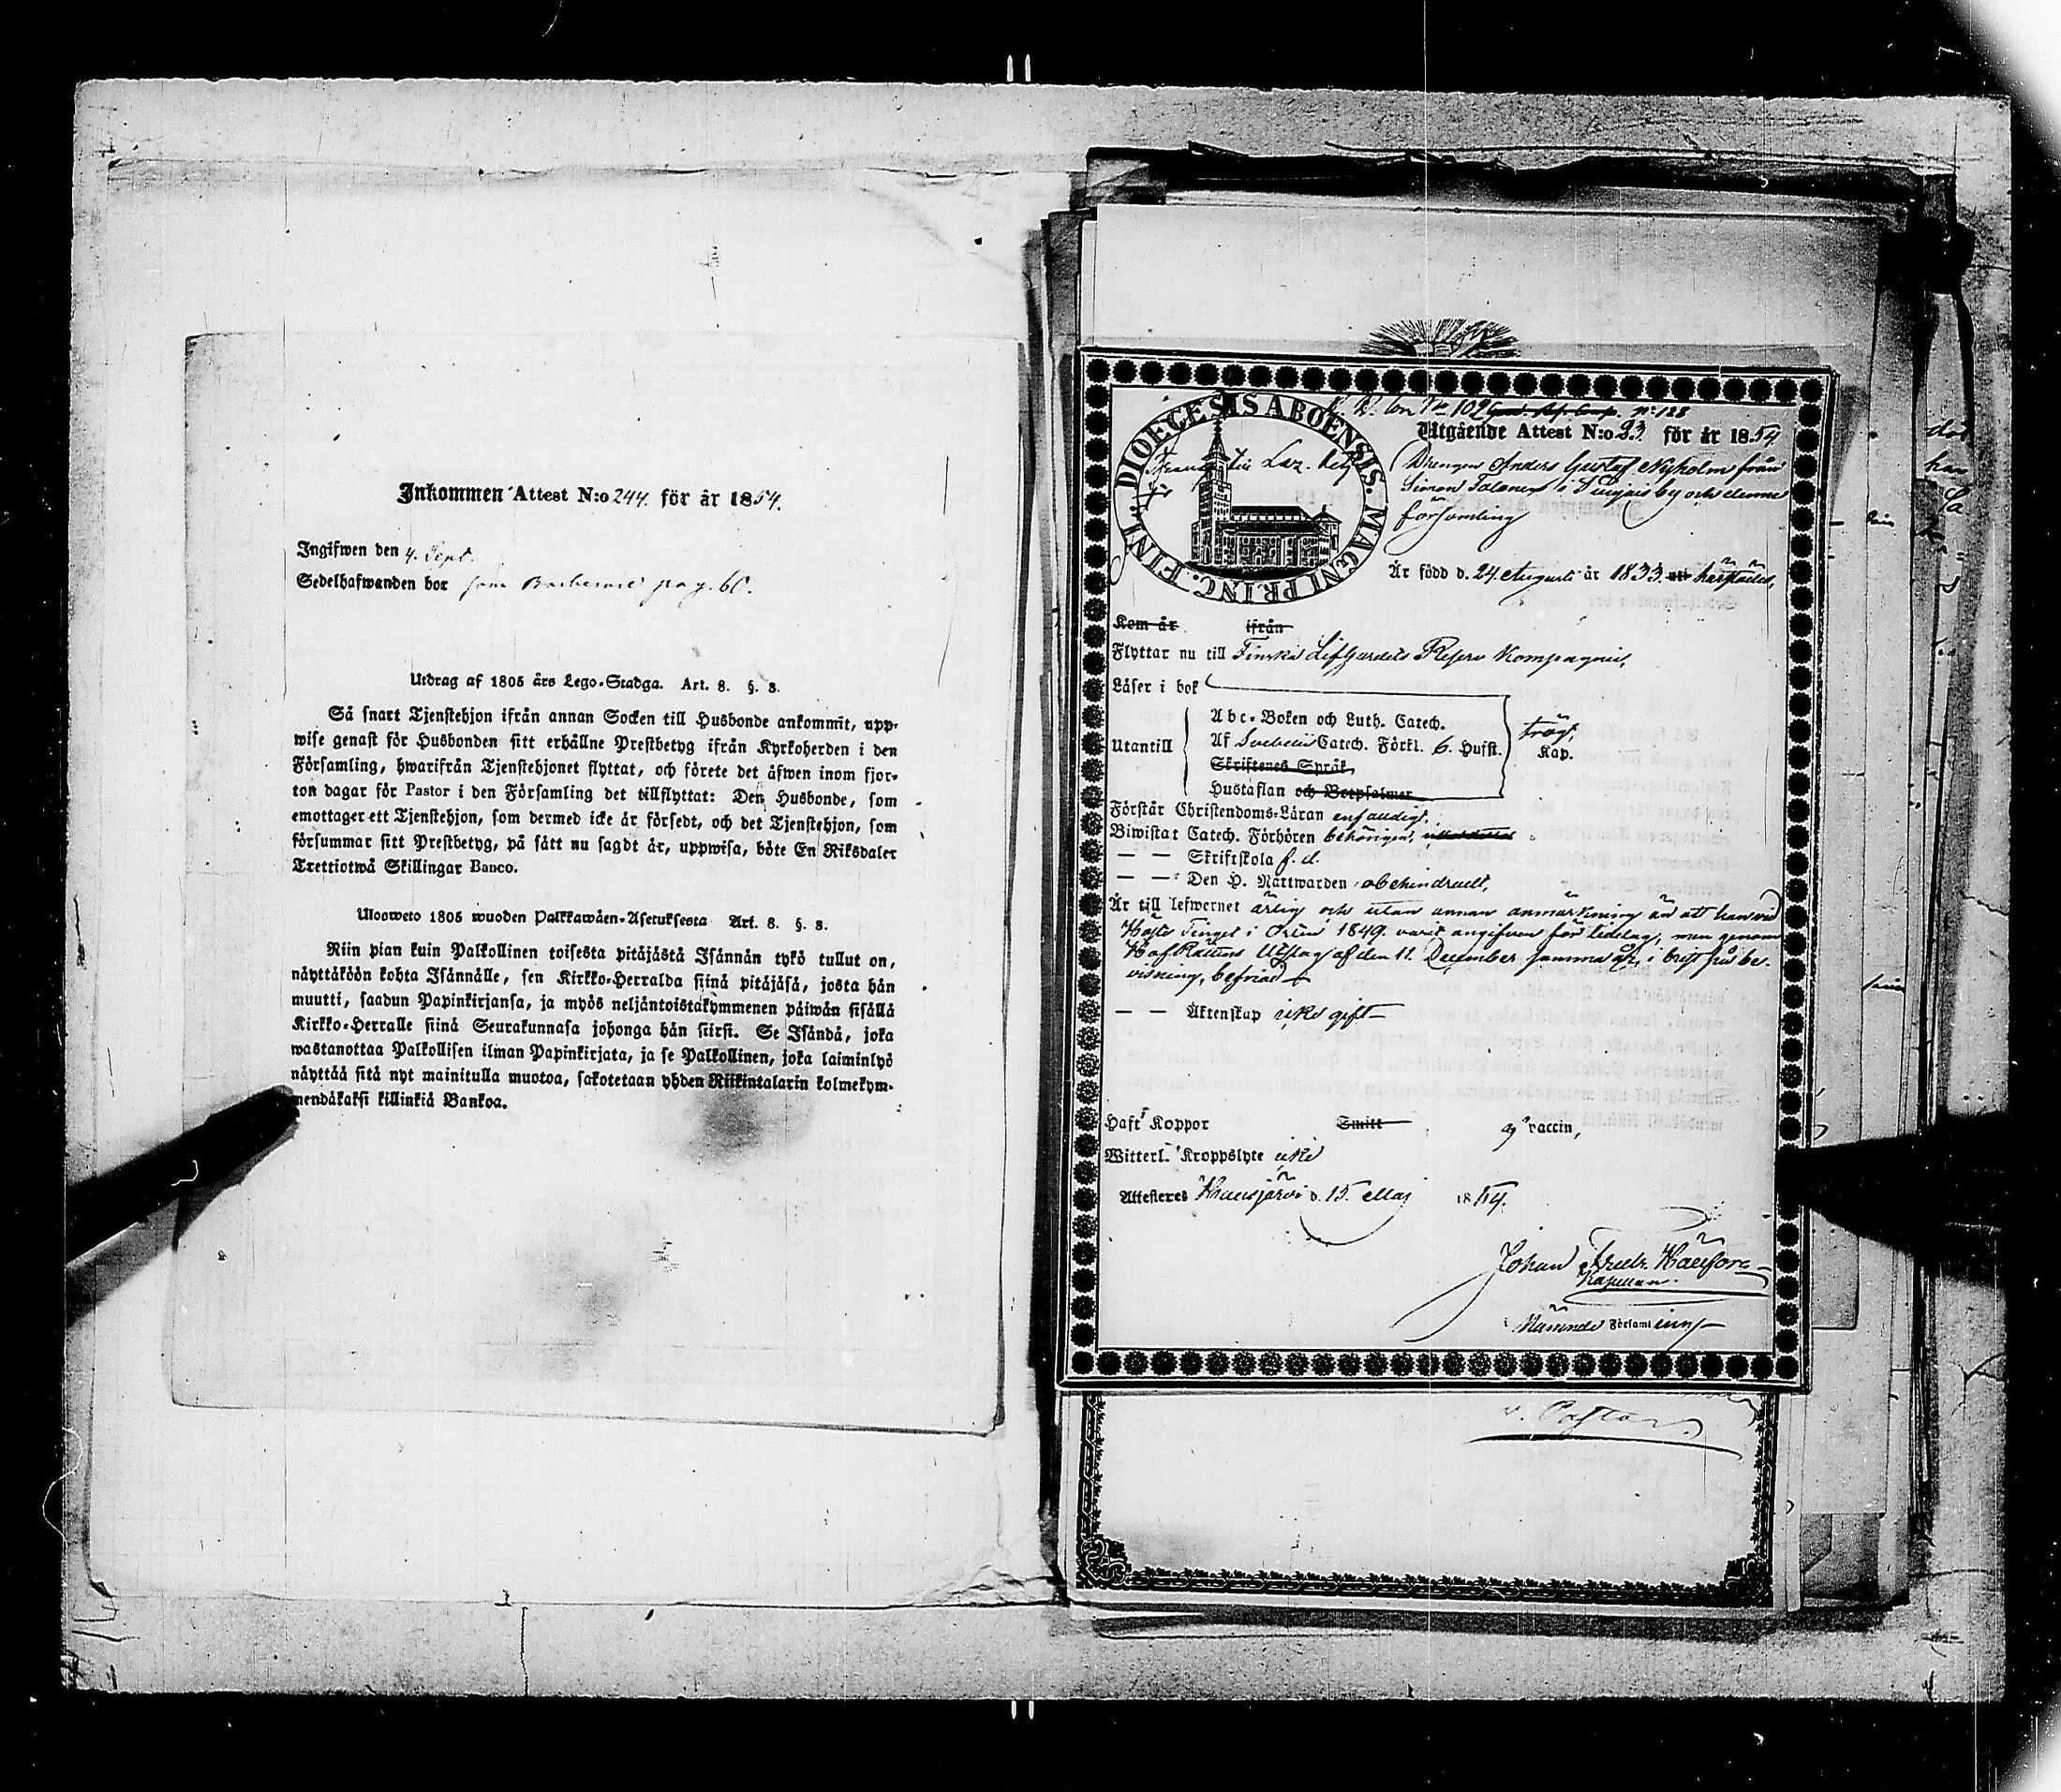 Inkommen Attest N:o 244. för år 1854.
Ingifwen den 4. Sept.
Sedelhafwanden bor som Barberare pag. 60.
Utdrag af 1805 års Lego-Stadga. Art. 8. §. 3.
Så snart Tjenstehjon ifrån annan Socken till Husbonde ankommit, upp-
wise genast för Husbonden sitt erhållne Prestbetyg ifrån Kyrkoherden i den
Församling, hwarifrån Tjenstehjonet flyttat, och förete det äfwen inom fjor-
ton dagar för Pastor i den Församling det tillflyttat: Den Husbonde, som
emottager ett Tjenstehjon, som dermed icke är försedt, och det Tjenstehjon, som
försummar sitt Prestbetyg, på sätt nu sagdt är, uppwisa, böte En Riksdaler
Trettiotwå Skillingar Banco.
Ulosweto 1805 wuoden Palkkawäen-Asetuksesta Art. 8. §. 3.
Niin pian kuin Palkollinen toisesta pitäjästä Isännän tykö tullut on,
näyttäköön kohta Isännälle, sen Kirkko-Herralda siinä pitäjäsä, josta hän
muutti, saadun Papinkirjansa, ja myös neljäntoistakymmenen päiwän sisällä
Kirkko-Herralle siinä Seurakunnasa johonga hän siirsi. Se Isändä, joka
wastanottaa Palkollisen ilman Papinkirjata, ja se Palkollinen, joka laiminlyö
näyttää sitä nyt mainitulla muotoa, sakotetaan yhden Riikintalarin kolmekym-
mendäkaksi killinkiä Bankoa.
DIOECESIS ABOENSIS. MAGNI PRINC. FINL.
109 N:o 128
Utgående Attest N:o 23. för år 1854
Drengen Anders Gustaf Nyholm från
Simon Talonen i by och denna
församling
Är född d. 24 Augusti år 1833. härstädes,
Kom år ifrån
Flyttar nu till Finska Lifgardets Reserv Kompagnie,
Läser i bok
Abc-Boken och Luth. Catech.
Utantill Af Svebelii Catech. Förkl. 6. Hufst. trögt, Kap.
Skriftenes Språk
Hustaflan och Botpsalmer
Förstår Christendoms-Läran enfaldigt.
Biwistat Catech. Förhören behörigen,
— — Skriftskola f. d.
— — Den H. Nattwarden obehindradt,
Är till lefwernet ärlig och utan annan anmärkning än att han vid
Höste Tinget i 1849. varit angifven för tidelag, men genom
HofRättens Utslag af den 11. December samma år, i brist på be-
visning, befriad
— — Äktenskap icke gift
Haft Koppor Smitt af vaccin,
Witterl. Kroppslyte icke
Attesteres Hausjärvi d. 15 Maj 1854.
Johan Fredr.
Kapellan.
Församling
v. Pastor.